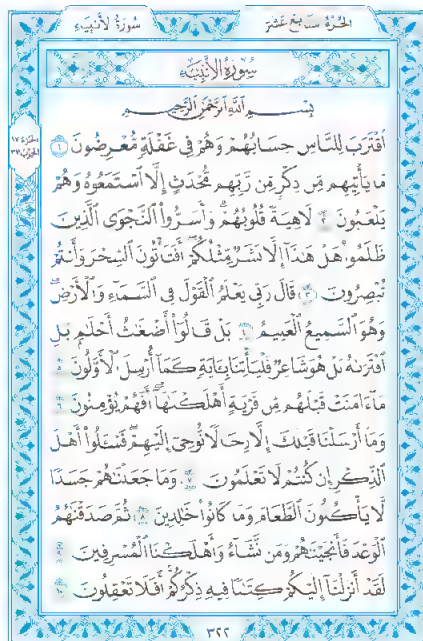 سُورَةُ الأَنبِيَاءِ
الجُزْءُ سَابِعَ عَشَرَ
سُورَةُ الأَنبِيَاءِ
بِسْمِ اللَّهِ الرَّحْمَٰنِ الرَّحِيمِ
اقْتَرَبَ لِلنَّاسِ حِسَابُهُمْ وَهُمْ فِي غَفْلَةٍ مُّعْرِضُونَ ١
مَا يَأْتِيهِم مِّن ذِكْرٍ مِّن رَّبِّهِم مُّحْدَثٍ إِلَّا اسْتَمَعُوهُ وَهُمْ
يَلْعَبُونَ ٢ لَاهِيَةً قُلُوبُهُمْ وَأَسَرُّوا النَّجْوَى الَّذِينَ
ظَلَمُوا هَلْ هَٰذَا إِلَّا بَشَرٌ مِّثْلُكُمْ أَفَتَأْتُونَ السِّحْرَ وَأَنتُمْ
تُبْصِرُونَ ٣ قَالَ رَبِّي يَعْلَمُ الْقَوْلَ فِي السَّمَاءِ وَالْأَرْضِ
وَهُوَ السَّمِيعُ الْعَلِيمُ ٤ بَلْ قَالُوا أَضْغَاثُ أَحْلَامٍ بَلِ
افْتَرَاهُ بَلْ هُوَ شَاعِرٌ فَلْيَأْتِنَا بِآيَةٍ كَمَا أُرْسِلَ الْأَوَّلُونَ ٥
مَا آمَنَتْ قَبْلَهُم مِّن قَرْيَةٍ أَهْلَكْنَاهَا أَفَهُمْ يُؤْمِنُونَ ٦
وَمَا أَرْسَلْنَا قَبْلَكَ إِلَّا رِجَالًا نُّوحِي إِلَيْهِمْ فَسْـَٔلُوا أَهْلَ
الذِّكْرِ إِن كُنتُمْ لَا تَعْلَمُونَ ٧ وَمَا جَعَلْنَاهُمْ جَسَدًا
لَّا يَأْكُلُونَ الطَّعَامَ وَمَا كَانُوا خَالِدِينَ ٨ ثُمَّ صَدَقْنَاهُمُ
الْوَعْدَ فَأَنجَيْنَاهُمْ وَمَن نَّشَاءُ وَأَهْلَكْنَا الْمُسْرِفِينَ ٩
لَقَدْ أَنزَلْنَا إِلَيْكُمْ كِتَابًا فِيهِ ذِكْرُكُمْ أَفَلَا تَعْقِلُونَ ١٠
٣٢٢